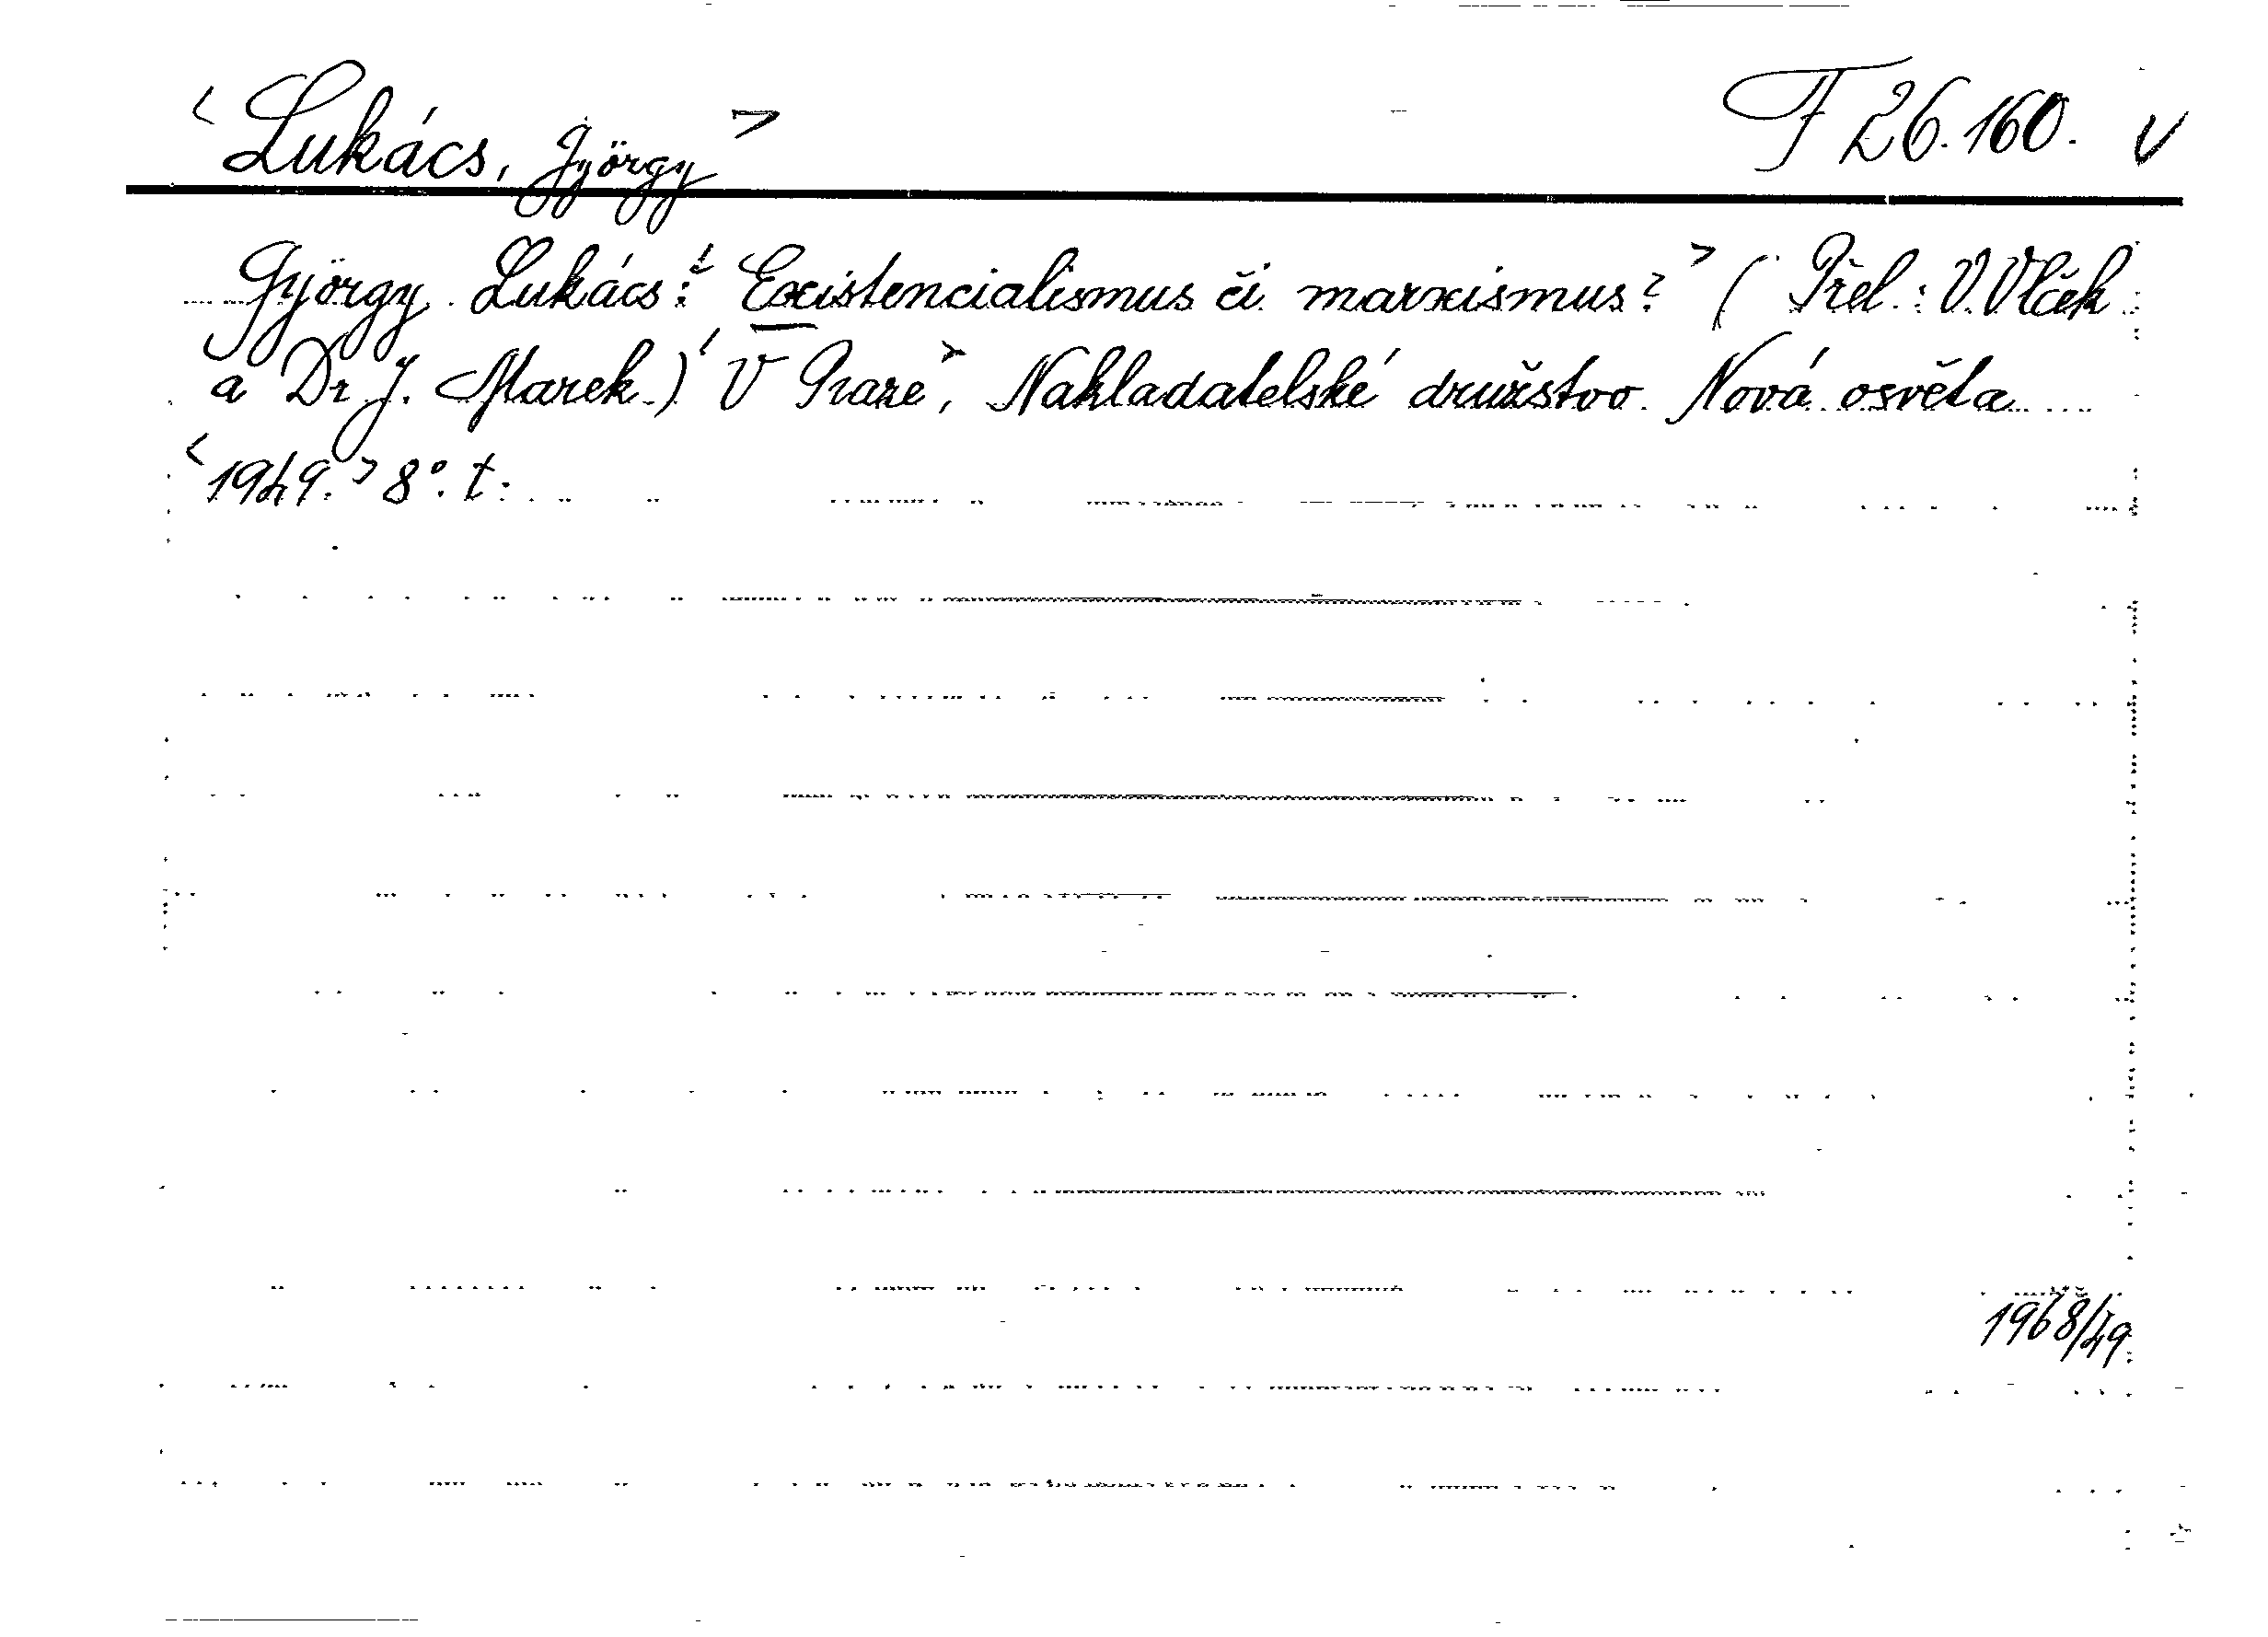 <Lukács, György> F 26.160. V
György Lukács: <Existencialismus či marxismus?> (Přel.: V. Vlček
a Dr J. Marek.) <V Praze>, Nakladatelské družstvo Nová osvěta
<1949.> 8°. t.
1968/49